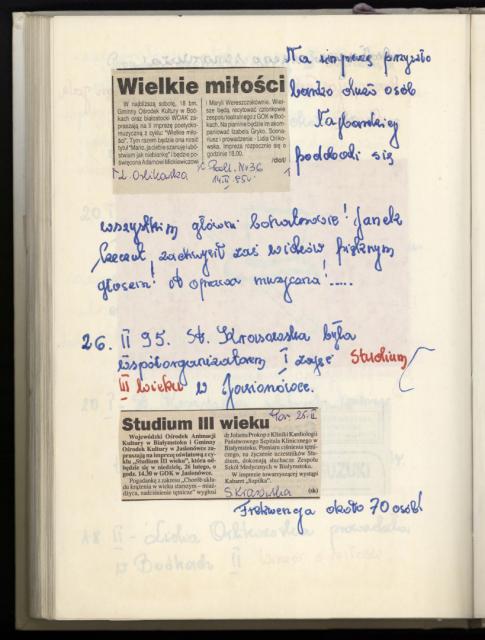 Na imprezę przyszło
bardzo dużo osób
Najbardziej
podobali się
Wielkie miłości
W najbliższą sobotę, 18 bm.
Gminny Ośrodek Kultury w Boć-
kach oraz białostocki WOAK za-
praszają na II imprezę poetycko-
muzyczną z cyklu: "Wielkie miło-
ści". Tym razem będzie ona nosić
tytuł "Mario, ja ciebie szanuję i ubó-
stwiam jak niebiankę" i będzie po-
święcona Adamowi Mickiewiczowi
i Maryli Wereszczakównie. Wier-
sze będą recytować członkowie
zespołu teatralnego z GOK w Boć-
kach. Na pianinie będzie im akom-
paniować Izabela Gryko. Scena-
riusz i prowadzenie - Lidia Orłow-
ska. Impreza rozpocznie się o
godzinie 18.00.
/dot/
Nr 36
14.II.95r.
wszystkim główni bohaterowie! Janek
zachwycił zaś widzów pięknym
głosem! A oprawa muzyczna!.....
26. II 95. St. Krasowska była
współorganizatorem I zajęć Studium
III wieku w Jasionówce.
Studium III wieku
25.II
Wojewódzki Ośrodek Animacji
Kultury w Białymstoku i Gminny
Ośrodek Kultury w Jasionówce za-
praszają na imprezę oświatową z cy-
klu „Studium III wieku", która od-
będzie się w niedzielę, 26 lutego, o
godz. 14.30 w GOK w Jasionówce.
Pogadankę z zakresu „Choroby ukła-
du krążenia w wieku starszym – miaż-
dżyca, nadciśnienie tętnicze" wygłosi
dr Jolanta Prokop z Kliniki Kardiologii
Państwowego Szpitala Klinicznego w
Białymstoku. Pomiaru ciśnienia tętni-
czego, na życzenie uczestników Stu-
dium, dokonają słuchacze Zespołu
Szkół Medycznych w Białymstoku.
W imprezie towarzyszącej wystąpi
Kabaret „Szpilka".
(sk)
S Krasowska
Frekwencja około 70 osób!